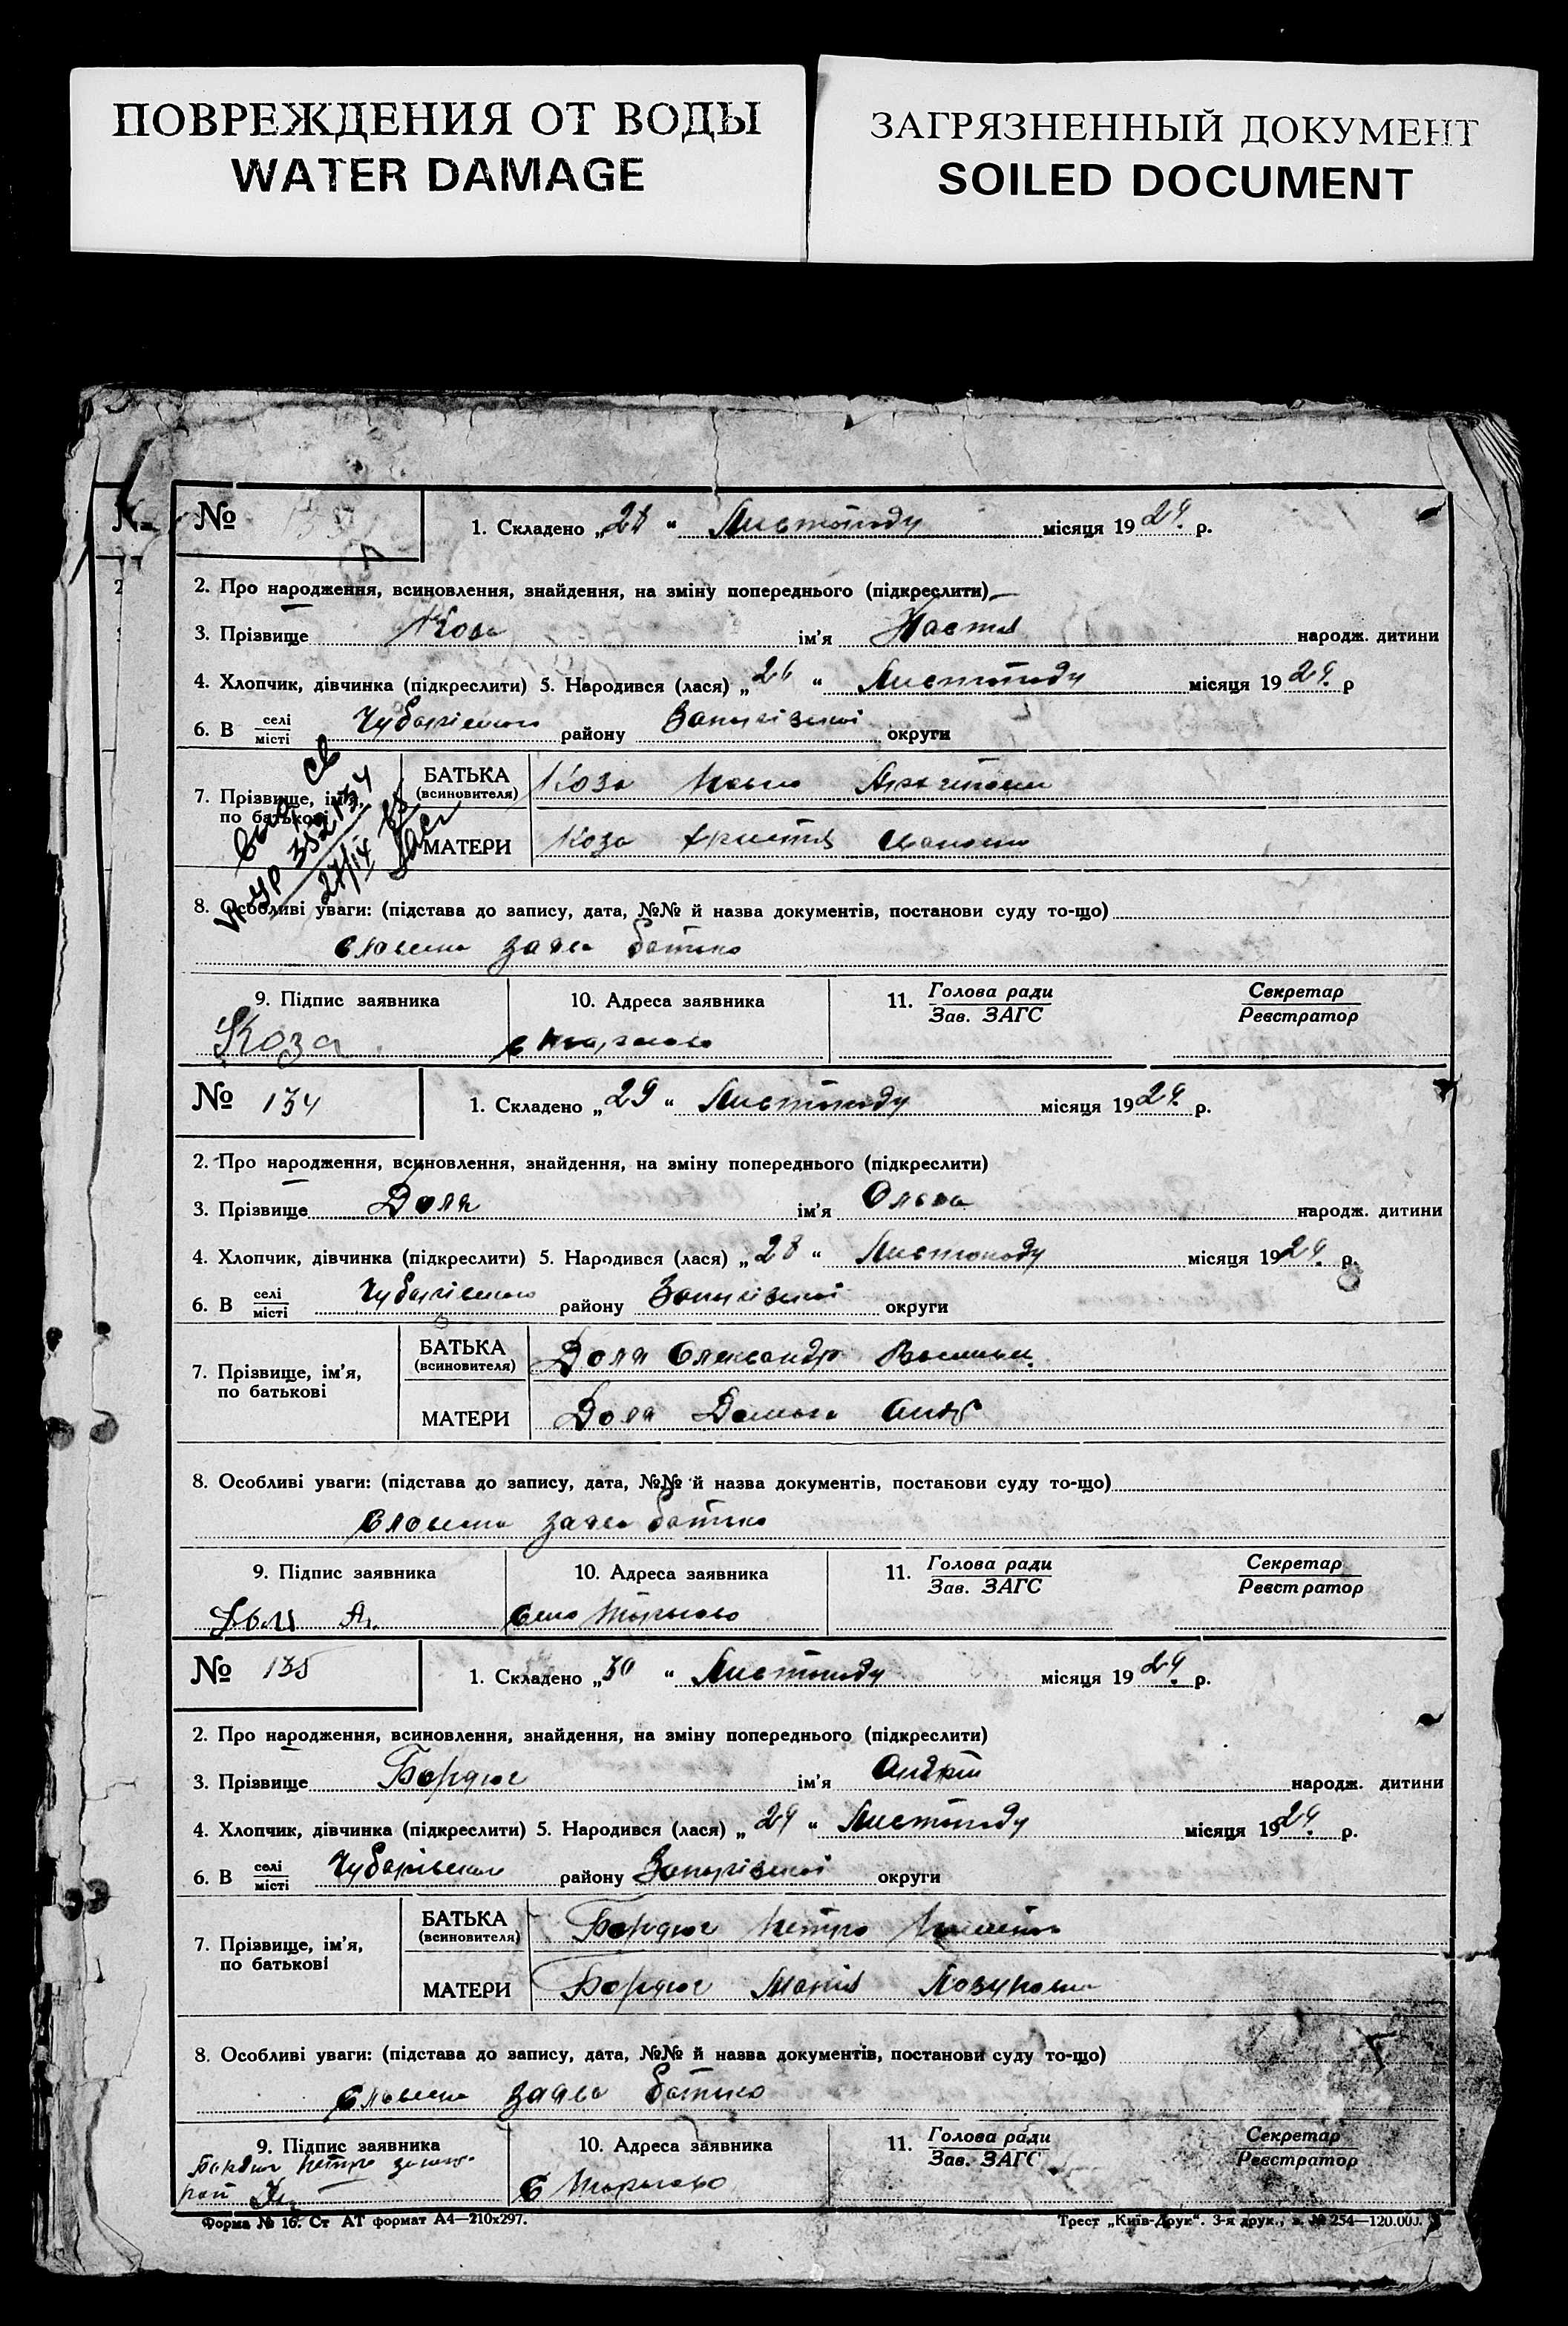 ПОВРЕЖДЕНИЯ ОТ ВОДЫ
WATER DAMAGE
ЗАГРЯЗНЕННЫЙ ДОКУМЕНТ
SOILED DOCUMENT
№
1. Складено „28“ Листопаду місяця 1929 р.
2. Про народження, всиновлення, знайдення, на зміну попереднього (підкреслити)
3. Прізвище Коза ім'я Настя народж. дитини
4. Хлопчик, дівчинка (підкреслити) 5. Народився (лася) „26“ Листопаду місяця 1929 р
6. В селі місті Чубарівського району Запорізької округи
7. Прізвище, ім'я, по батькові
БАТЬКА (всиновителя) Коза
МАТЕРИ Коза Христя
8. Особливі уваги: (підстава до запису, дата, №№ й назва документів, постанови суду то-що)
словесна заява батька
9. Підпис заявника 10. Адреса заявника 11. Голова ради Зав. ЗАГС Секретар Реєстратор
Коза
№ 134
1. Складено „29“ Листопаду місяця 1929 р.
2. Про народження, всиновлення, знайдення, на зміну попереднього (підкреслити)
3. Прізвище Доля ім'я Ольга народж. дитини
4. Хлопчик, дівчинка (підкреслити) 5. Народився (лася) „28“ Листопаду місяця 1929 р.
6. В селі місті Чубарівського району Запорізької округи
7. Прізвище, ім'я, по батькові
БАТЬКА (всиновителя) Доля Олександр
МАТЕРИ Доля
8. Особливі уваги: (підстава до запису, дата, №№ й назва документів, постанови суду то-що)
словесна заява батька
9. Підпис заявника 10. Адреса заявника 11. Голова ради Зав. ЗАГС Секретар Реєстратор
село
№ 135
1. Складено „30“ Листопаду місяця 1929 р.
2. Про народження, всиновлення, знайдення, на зміну попереднього (підкреслити)
3. Прізвище Бордюг ім'я Андрій народж. дитини
4. Хлопчик, дівчинка (підкреслити) 5. Народився (лася) „29“ Листопаду місяця 1929 р.
6. В селі місті Чубарівського району Запорізької округи
7. Прізвище, ім'я, по батькові
БАТЬКА (всиновителя) Бордюг Петро
МАТЕРИ Бордюг Марія
8. Особливі уваги: (підстава до запису, дата, №№ й назва документів, постанови суду то-що)
словесна заява батька
9. Підпис заявника 10. Адреса заявника 11. Голова ради Зав. ЗАГС Секретар Реєстратор
Форма № 16. Ст АТ формат А4—210х297. Трест „Київ-Друк“. 3-я друк., з. № 254—120.000.